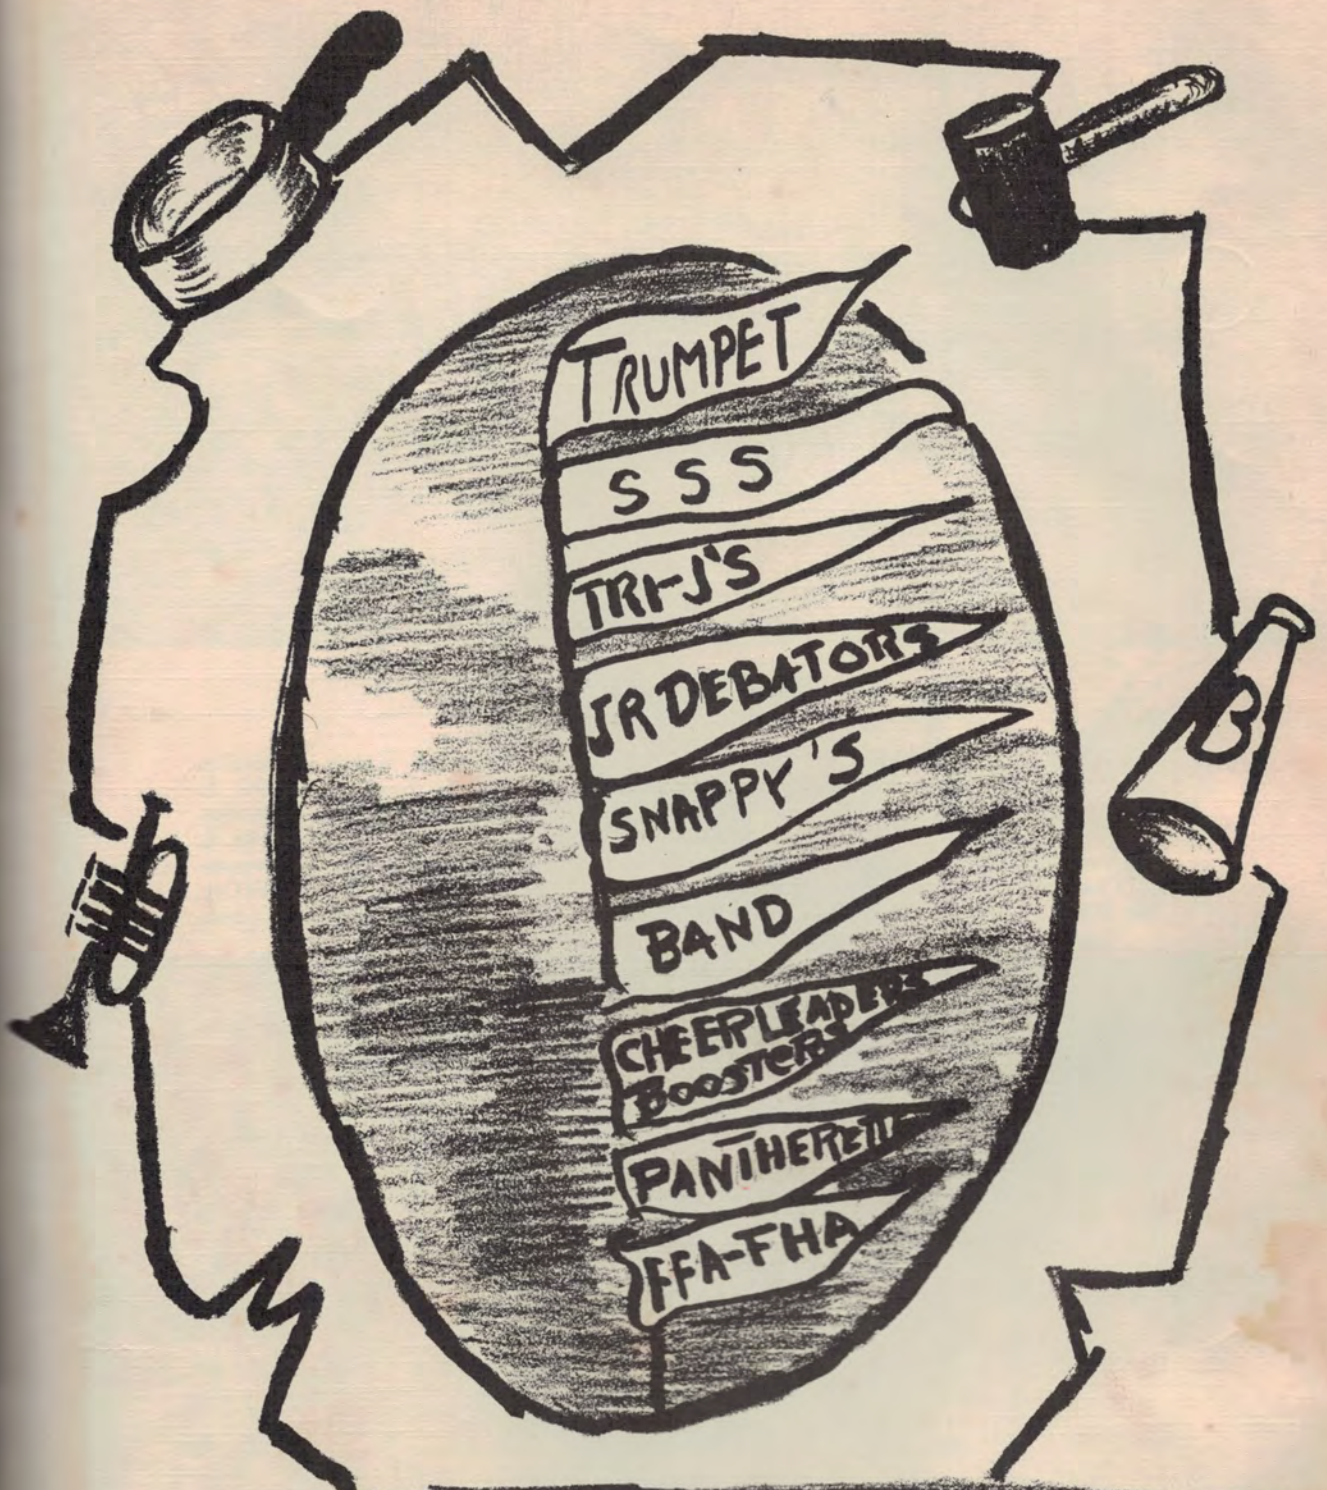 TRUMPET
S S S
TRI-J'S
JR DEBATORS
SNAPPY'S
BAND
CHEERLEADERS
BOOSTERS
FFA-FHA
B